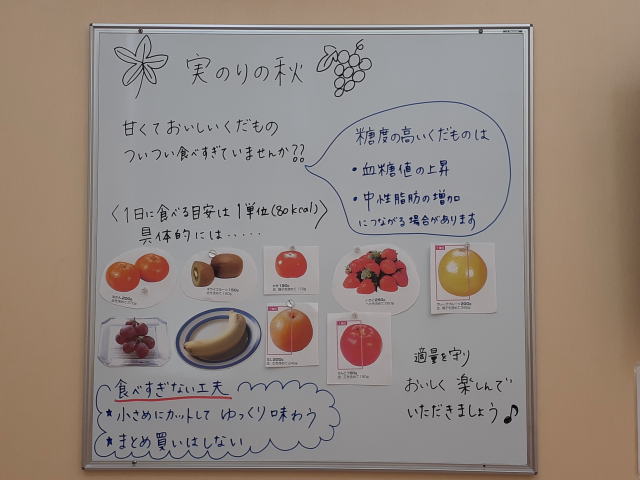 実のりの秋
甘くておいしいくだもの
ついつい食べすぎていませんか??
糖度の高いくだものは
・血糖値の上昇
・中性脂肪の増加
につながる場合があります
〈1日に食べる目安は1単位(80kcal)〉
具体的には・・・・・
食べすぎない工夫
★小さめにカットして ゆっくり味わう
★まとめ買いはしない
適量を守り
おいしく 楽しんで
いただきましょう♪